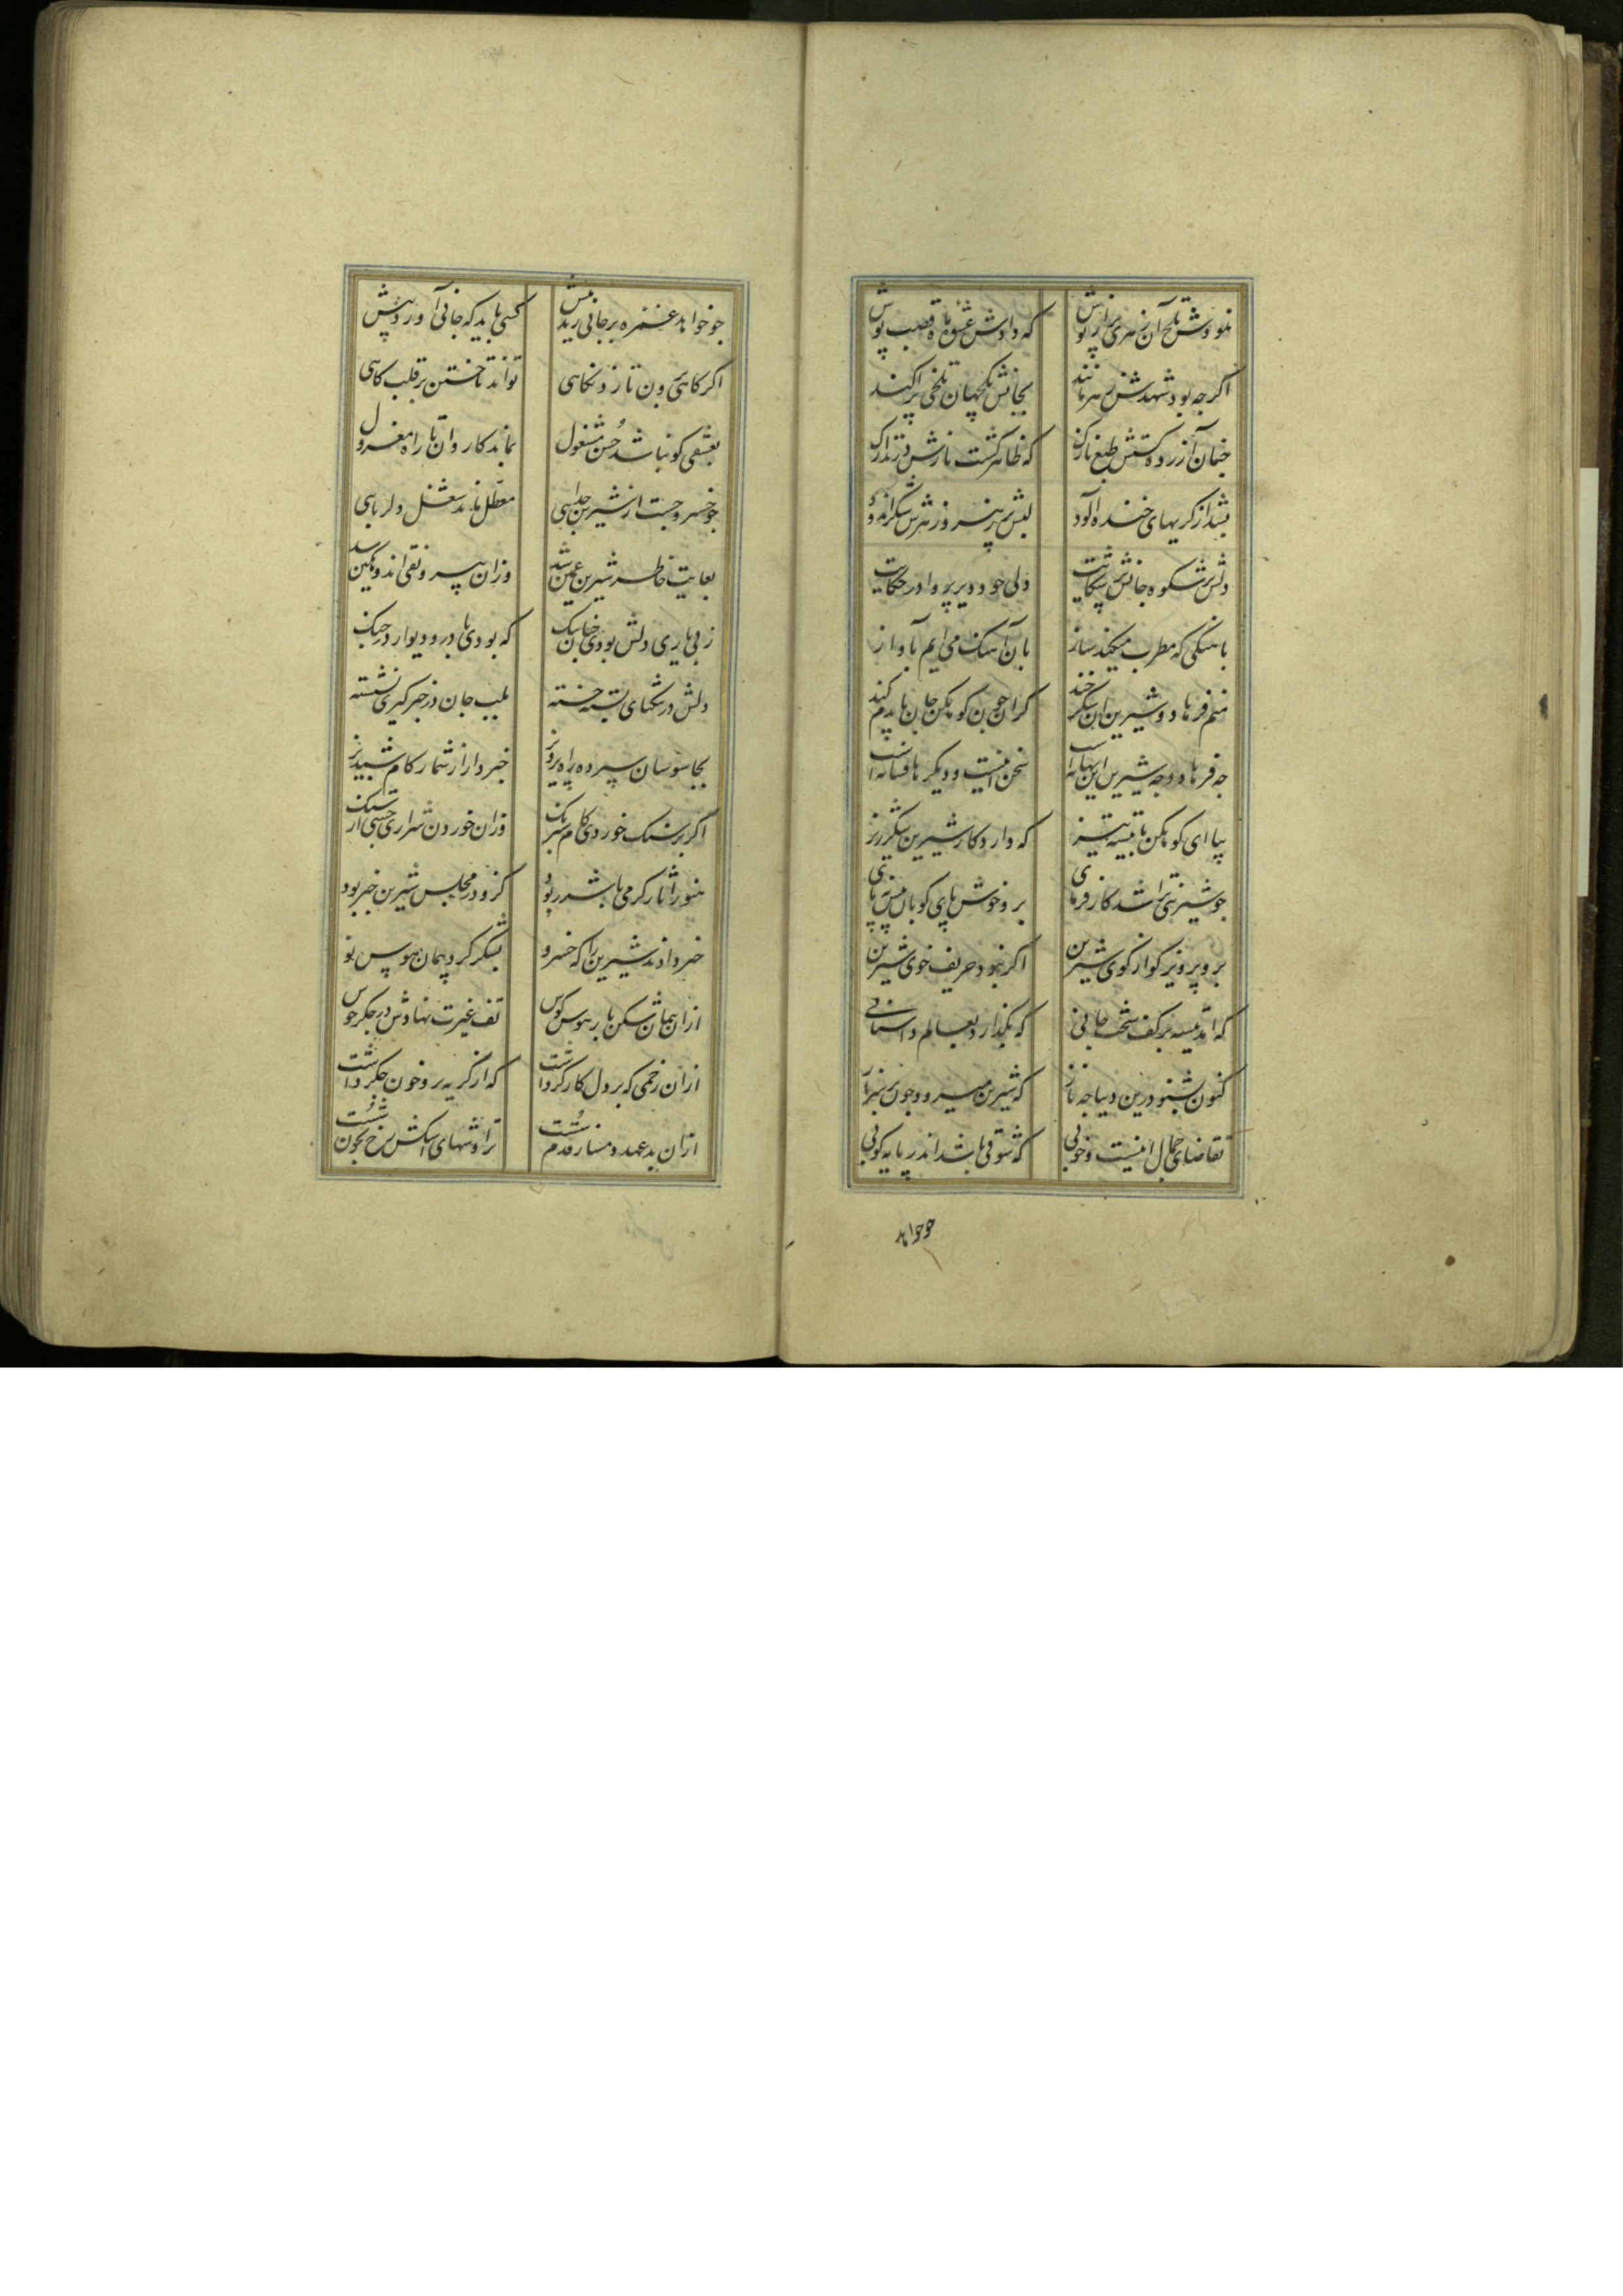 اکرجه بود شهدش زهر مانند بجانش یکجهان تلخی پراکند
چنان آزرده کشتش طبع نازک که ظاهر کشت نازش در تدارک
بشد از کریهای خنده الود لبش پر زهر و زهرش شکراندود
دلش پر شکوه جانش پر شکایت ولی خود دیر پروا در حکایت
باهنکی که مطرب میکند ساز بان آهنک می ایم باواز
منم فرهاد و شیرین ان شکرخند کزان چون کوهکن جان بایدم کند
جه فرهاد و جه شیرین این بهانه است سخن اینست و دیکرها فسانه است
بیا ای کوهکن با تیشه تیز که دارد کار شیرین شکرریز
جو شیرینی ترا شد کارفرمای برو خوش پای کوبان پیش نه پای
برو پرویز کو از کوی شیرین اکر نبود حریف خوی شیرین
که امد تیشه بر کف سخت جانی که بکذارد بعالم داستانی
کنون بشنو درین دیباجه ناز که شیرین میرود چون بر سر
تقاضای جمال اینست و خوبی که شوقی باشد اندر پایه کوبی
جو خواهد
جو خواهد غمزه بر جانی زند نیش کسی باید که جانی آورد پیش
اکر کاهی برون تازد نکاهی تواند تاختن بر قلب کاهی
بعشقی کو نباشد حسن مشغول بماند کاروان ناز معزول
جو خسرو جست از شیرین جدایی معطل ماند شغل دلربایی
بغایت خاطر شیرین غمین شد وزان بی رونقی اندوهکین شد
ز بی یاری دلش بودی چنان تنک که بودی با در و دیوار در جنک
دلش در تنکنای سینه خسته بلب جان در خبر کیری نشسته
بجاسوسان سپرده راه پرویز خبردار از شمار کام شبدیز
اکر بر سنک خوردی کام شبرنک وزان خوردن شراری جستی از سنک
هنوز آثار کرمی با شرر بود کزو در مجلس شیرین خبر بود
خبر دادند شیرین را که خسرو بشکر کرد پیمان هوس نو
ازان پیمان شکن یار هوس کوش تف غیرت نهادش در جکر جوش
ازان زخمی که بر دل کارکر داشت که از کریه برو خون جکر داشت
ازان بد عهد دمساز قدم سست تراوشهای اشکش رخ بخون شست